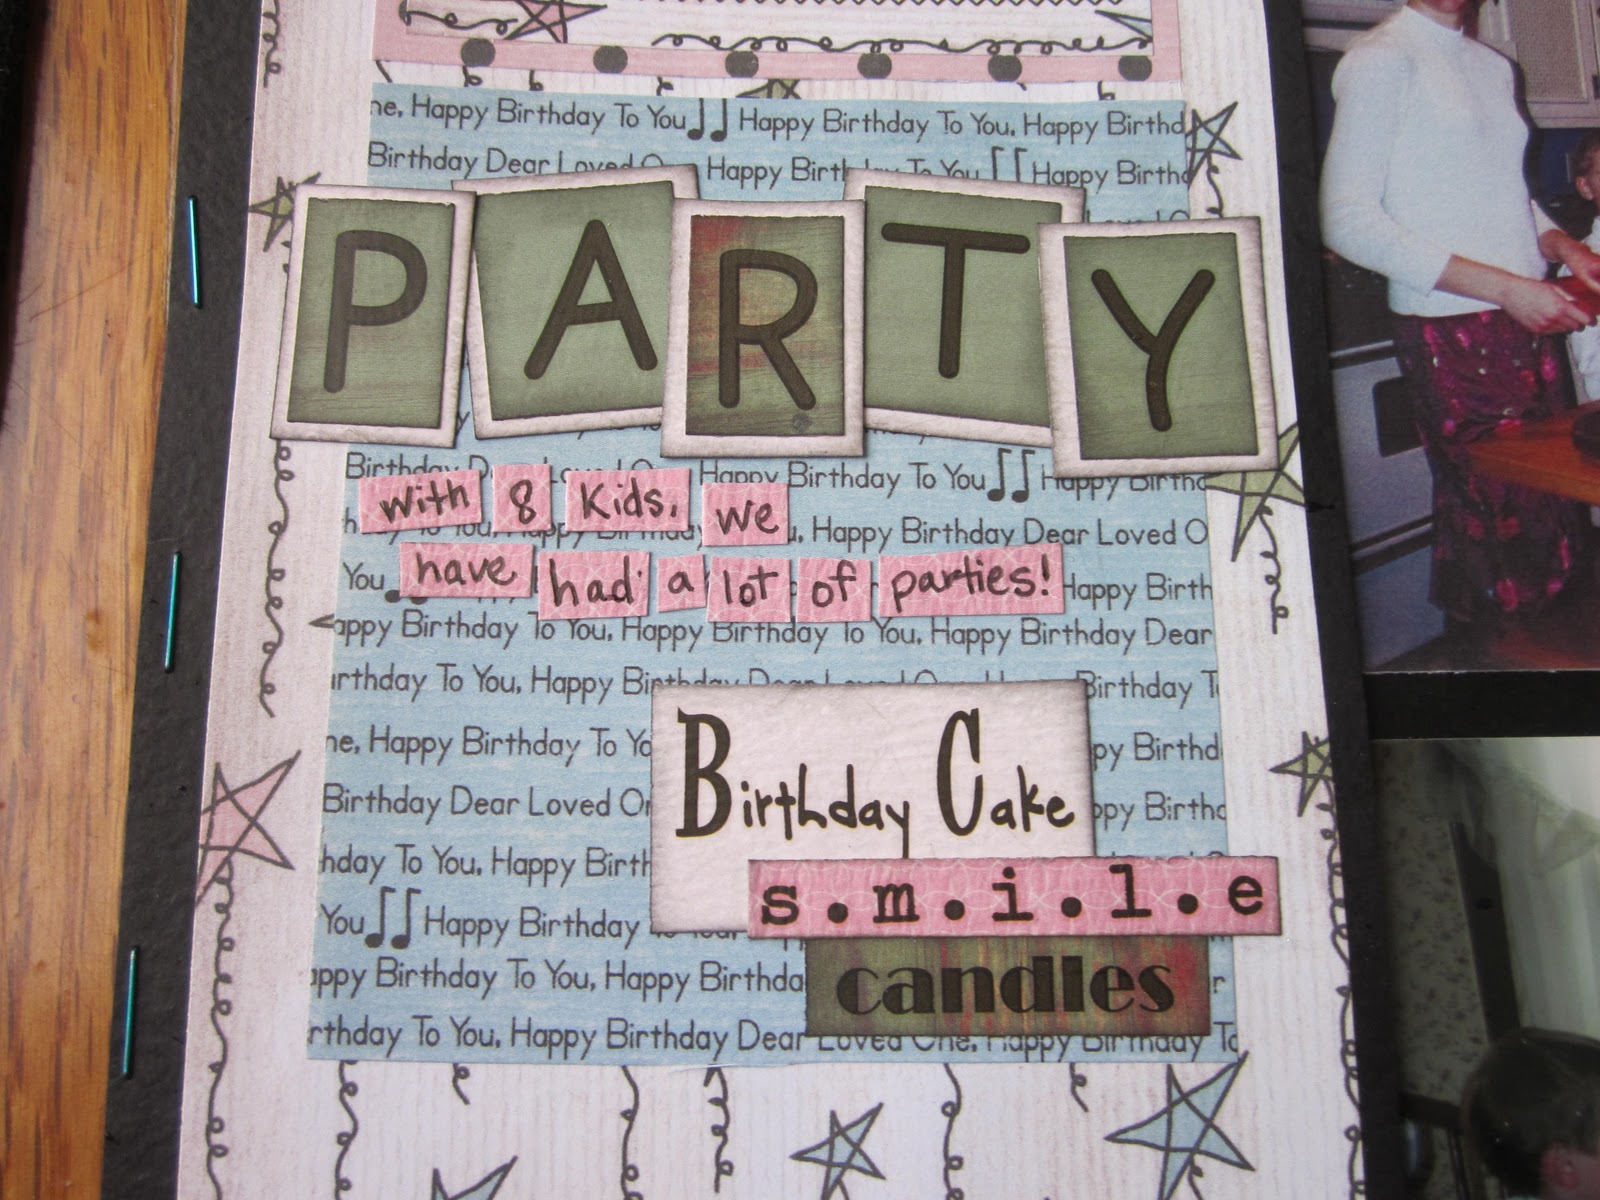 ne, Happy Birthday To You♫ Happy Birthday To You, Happy Birthd
Birthday Dear Loved One Happy Birthday To You♫ Happy Birthd
PARTY
Birthday Dear Loved One Happy Birthday To You♫ Happy Birthd
with 8 kids, we
hday To You, Happy Birthday You, Happy Birthday Dear Loved O
You Happy Birth
have had a lot of parties!
appy Birthday To You, Happy Birthday To You, Happy Birthday Dear
irthday To You, Happy Birthday Dear Loved One Birthday T
ne, Happy Birthday To Yo ppy Birthd
Birthday Cake
Birthday Dear Loved On ppy Birthd
hday To You, Happy Birth
s.m.i.l.e
You♫ Happy Birthday To Your
candles
appy Birthday To You, Happy Birthda r
rthday To You, Happy Birthday Dear Loved One, Happy Birthday To